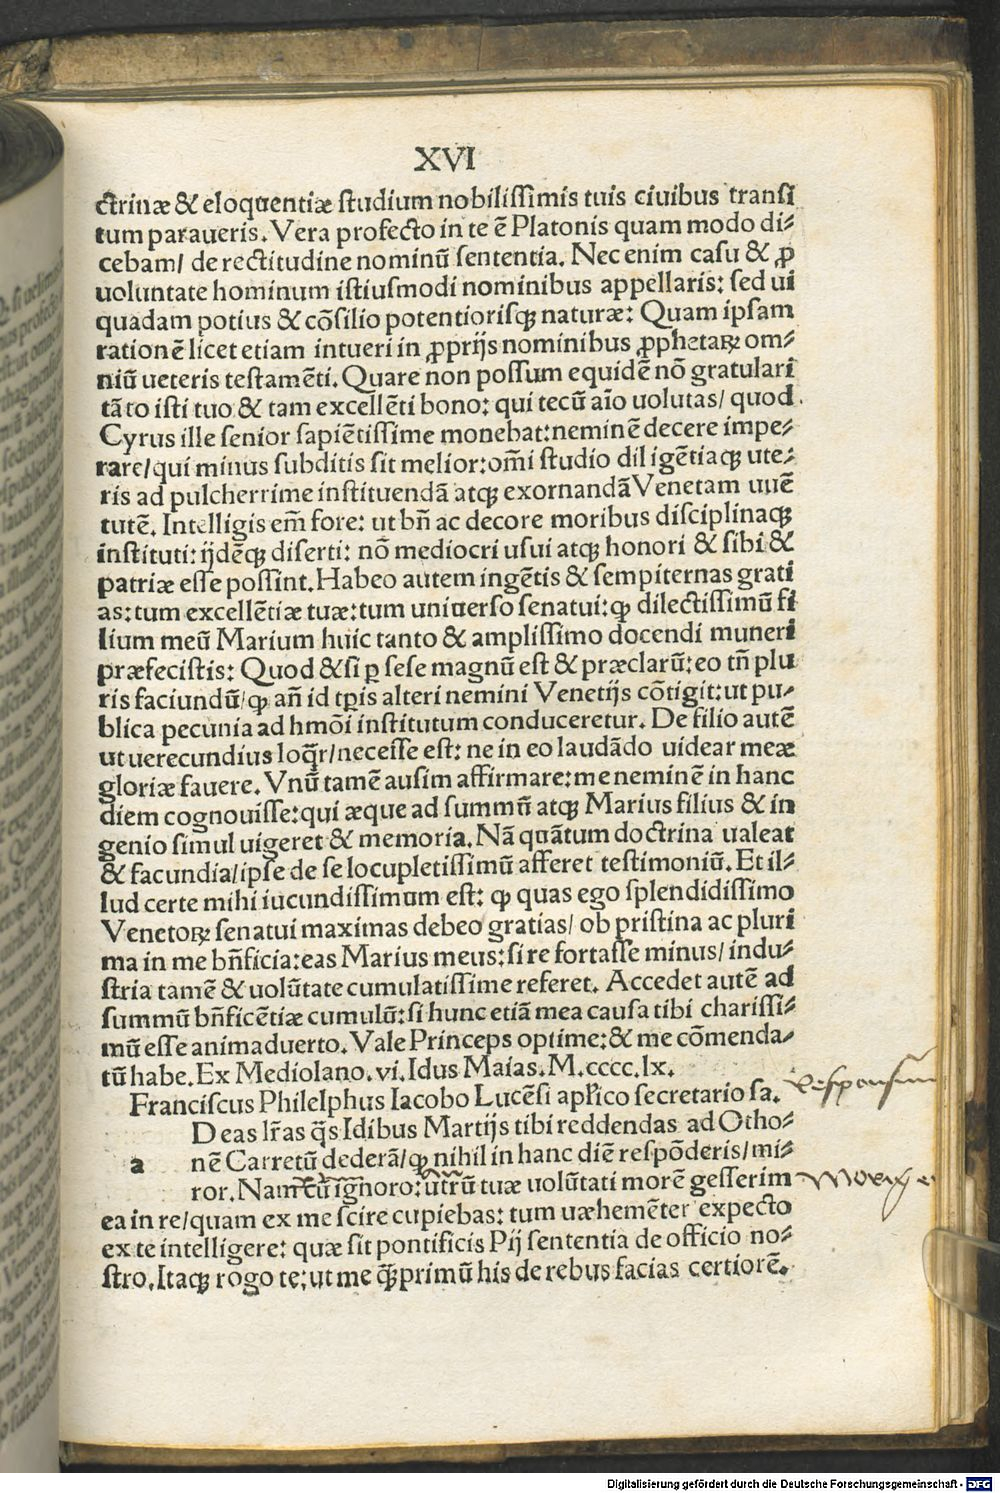 XVI
ctrinæ & eloquentiæ ſtudium nobiliſſimis tuis ciuibus tranſi
tum paraueris. Vera profecto in te ē Platonis quam modo di⸗
cebam/ de rectitudine nominū ſententia. Nec enim caſu & ꝓ
uoluntate hominum iſtiuſmodi nominibus appellaris: ſed ui
quadam potius & cōſilio potentioriſqꝫ naturæ: Quam ipſam
rationē licet etiam intueri in ꝓprijs nominibus ꝓphetaꝝ om⸗
niū ueteris teſtamēti. Quare non poſſum equidē nō gratulari
tāto iſti tuo & tam excellēti bono: qui tecū aīo uolutas/ quod
Cyrus ille ſenior ſapiētiſſime monebat: neminē decere impe⸗
rare/qui minus ſubditis ſit melior: om̄i ſtudio diligētiaqꝫ ute⸗
ris ad pulcherrime inſtituendā atqꝫ exornandā Venetam iuuē
tutē. Intelligis em̄ fore: ut bn̄ ac decore moribus diſciplinaqꝫ
inſtituti: ijdēqꝫ diſerti: nō mediocri uſui atqꝫ honori & ſibi &
patriæ eſſe poſſint. Habeo autem ingētis & ſempiternas grati
as: tum excellētiæ tuæ: tum uniuerſo ſenatui: ꝙ dilectiſſimū fi
lium meū Marium huic tanto & ampliſſimo docendi muneri
præfeciſtis: Quod & ſi ꝑ ſeſe magnū eſt & præclarū: eo tn̄ plu
ris faciundū/ ꝙ an̄ id tꝑis alteri nemini Venetijs cōtigit: ut pu⸗
blica pecunia ad hmōi inſtitutum conduceretur. De filio autē
ut uerecundius loq̄r/neceſſe eſt: ne in eo laudādo uidear meæ
gloriæ fauere. Vnū tamē auſim affirmare: me neminē in hanc
diem cognouiſſe: qui æque ad ſummū atqꝫ Marius filius & in
genio ſimul uigeret & memoria. Nā quātum doctrina ualeat
& facundia/ipſe de ſe locupletiſſimū afferet teſtimoniū. Et il⸗
lud certe mihi iucundiſſimum eſt: ꝙ quas ego ſplendidiſſimo
Venetoꝝ ſenatui maximas debeo gratias/ ob priſtina ac pluri
ma in me bn̄ficia: eas Marius meus: ſi re fortaſſe minus/ indu⸗
ſtria tamē & uolūtate cumulatiſſime referet. Accedet autē ad
ſummū bn̄ficētiæ cumulū: ſi hunc etiā mea cauſa tibi chariſſi⸗
mū eſſe animaduerto. Vale Princeps optime: & me cōmenda⸗
tū habe. Ex Mediolano. vi. Idus Maias. M. cccc. lx.
Franciſcus Philelphus Iacobo Lucēſi apl'ico ſecretario ſa.
Reſponſum
Deas lr̄as q̄s Idibus Martijs tibi reddendas ad Otho⸗
a nē Carretū dederā/ ꝙ nihil in hanc diē reſpōderis/ mi⸗
ror. Nam cū ignoro: utrū tuæ uolūtati morē geſſerim
ea in re/quam ex me ſcire cupiebas: tum uæhemēter expecto
ex te intelligere: quæ ſit pontificis Pij ſententia de officio no⸗
ſtro. Itaqꝫ rogo te: ut me q̄ꝫprimū his de rebus facias certiorē.
Digitalisierung gefördert durch die Deutsche Forschungsgemeinschaft - DFG